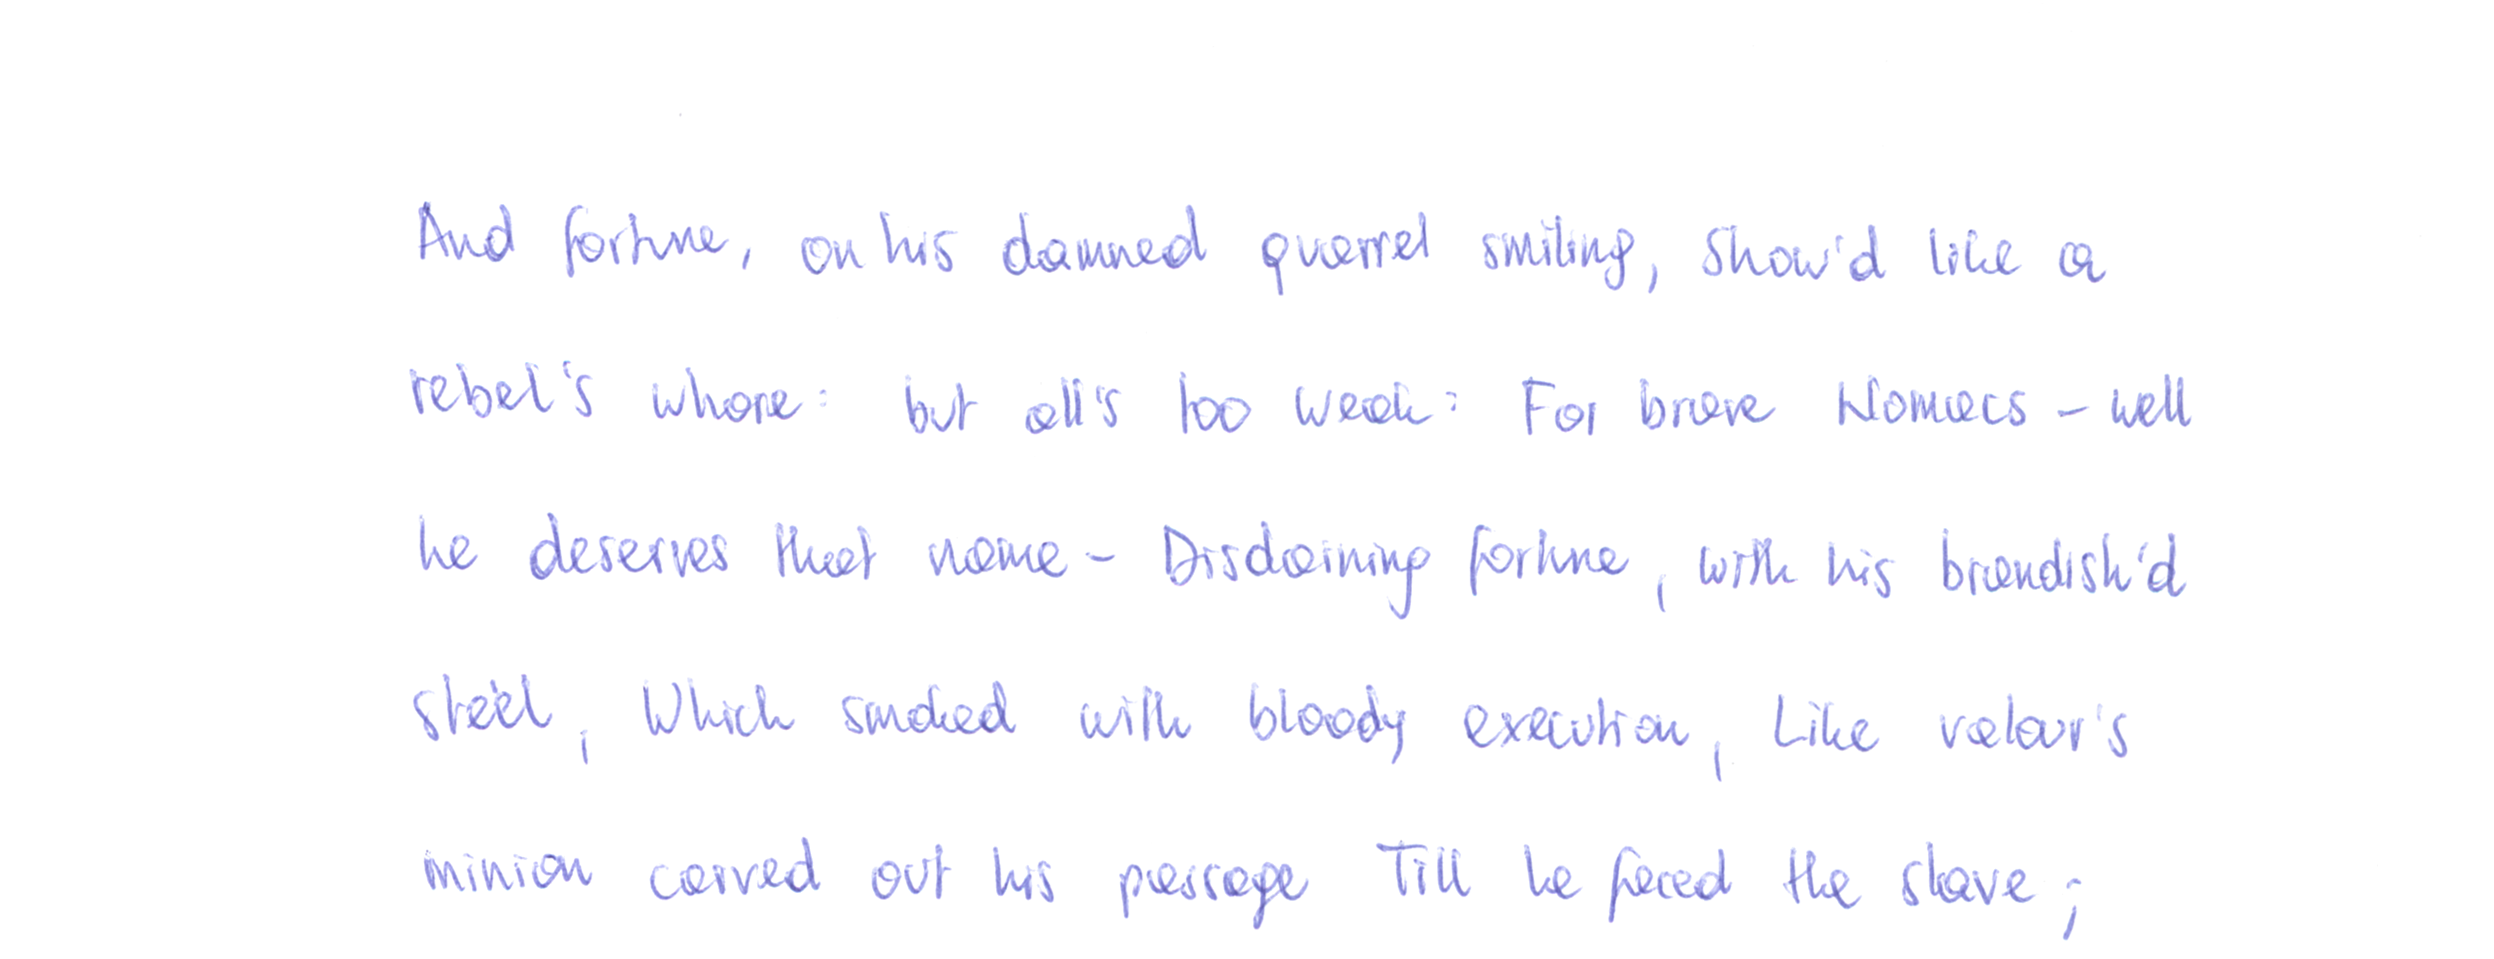 And fortune, on his damned quarrel smiling, Show'd like a
rebel's whore: but all's too weak: For brave Nomacs - well
he deserves that name - Disdaining fortune, with his brandish'd
steel, Which smoked with bloody execution, Like valour's
minion carved out his passage Till he faced the slave;